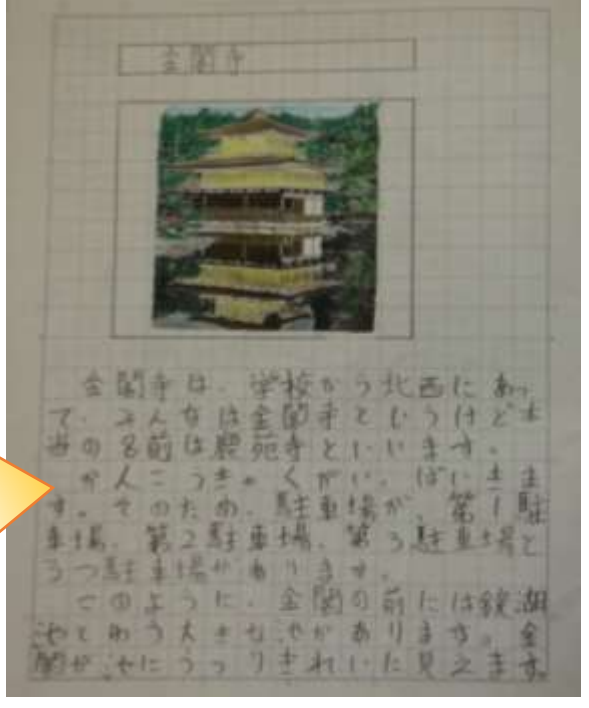 金閣寺
金閣寺は、学校から北西にあっ
て、みんなは金閣寺というけど本
当の名前は鹿苑寺といいます。
かんこうきゃくがいっぱいきま
す。そのため、駐車場が、第1駐
車場、第2駐車場、第3駐車場と
3つ駐車場があります。
このように、金閣の前には鏡湖
池という大きな池があります。金
閣が池にうつりきれいに見えます。